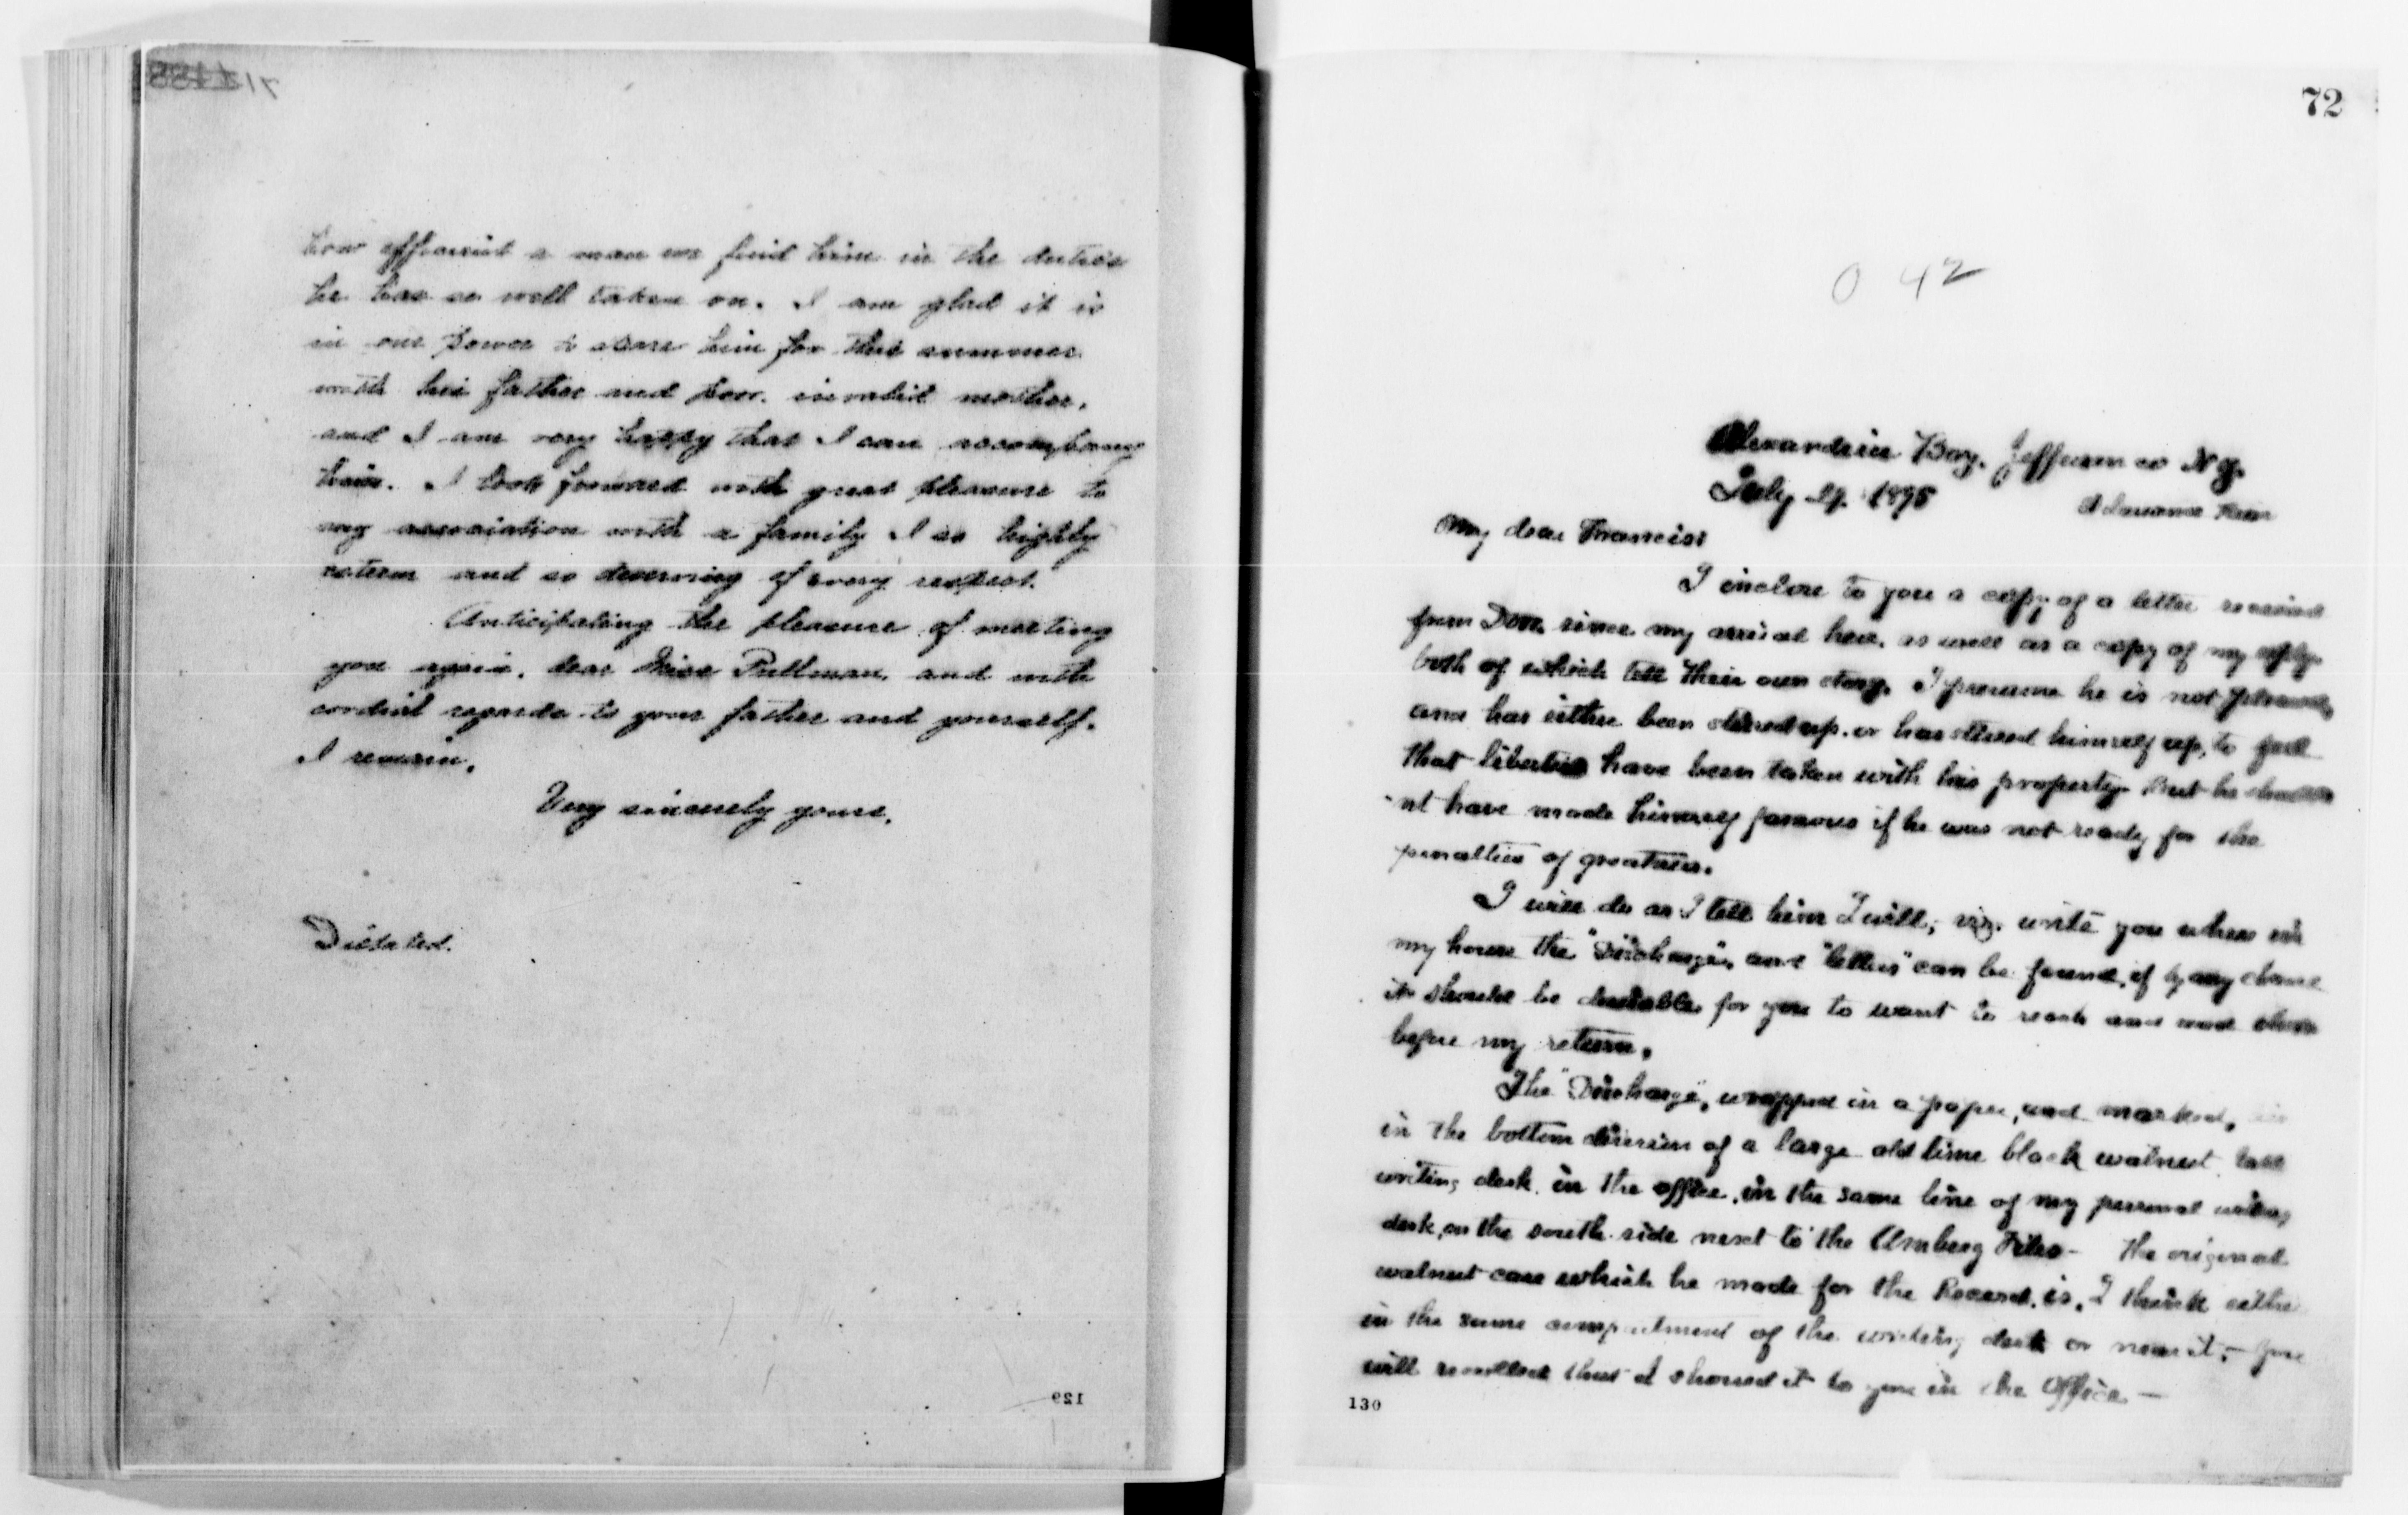 how efficient a man we find him in the duties
he has so well taken on. I am glad it is
in our power to share him for this summer
with his father and poor invalid mother,
and I am very happy that I can accompany
him. I look forward with great pleasure to
my association with a family I so highly
esteem and so deserving of every respect.
Anticipating the pleasure of meeting
you again, dear Miss Pullman, and with
cordial regards to your father and yourself,
I remain,
Very sincerely yours,
Dictated.
129
72
0 42
Alexandria Bay, Jefferson Co N.Y.
July 29. 1895
My dear Francis:
I inclose to you a copy of a letter received
from Dom. since my arrival here, as well as a copy of my reply
both of which tell their own story. I presume he is not pleased,
and has either been stirred up, or has stirred himself up, to feel
that liberties have been taken with his property. But he should
n't have made himself famous if he was not ready for the
penalties of greatness.
I will do as I tell him I will; viz. write you where in
my house the "Discharge", and "letters" can be found, if by any chance
it should be desirable for you to want to reach and
before my return.
The "Discharge", wrapped in a paper, and marked,
in the bottom division of a large old time black walnut tall
writing desk, in the office, in the same line of my personal writing
desk, on the south side next to the Amberg Files - The original
walnut case which he made for the Record, is, I think either
in the same compartment of the writing desk or near it; - You
will recollect that I showed it to you in the Office -
130